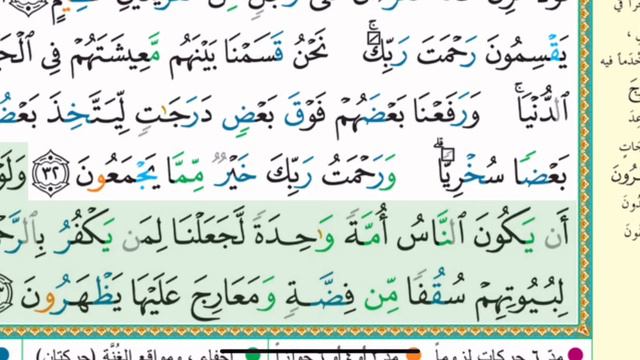 يَقْسِمُونَ رَحْمَتَ رَبِّكَ ۚ نَحْنُ قَسَمْنَا بَيْنَهُم مَّعِيشَتَهُمْ فِى الْحَ
الدُّنْيَا ۚ وَرَفَعْنَا بَعْضَهُمْ فَوْقَ بَعْضٍ دَرَجَٰتٍ لِّيَتَّخِذَ بَعْضُ
بَعْضًا سُخْرِيًّا ۗ وَرَحْمَتُ رَبِّكَ خَيْرٌ مِّمَّا يَجْمَعُونَ ٣٢ وَلَوْ
أَن يَكُونَ النَّاسُ أُمَّةً وَٰحِدَةً لَّجَعَلْنَا لِمَن يَكْفُرُ بِالرَّحْ
لِبُيُوتِهِمْ سُقُفًا مِّن فِضَّةٍ وَمَعَارِجَ عَلَيْهَا يَظْهَرُونَ
مدّ ٦ حركات لزوماً
إخفاء، ومواقع الغُنَّة (حركتان)